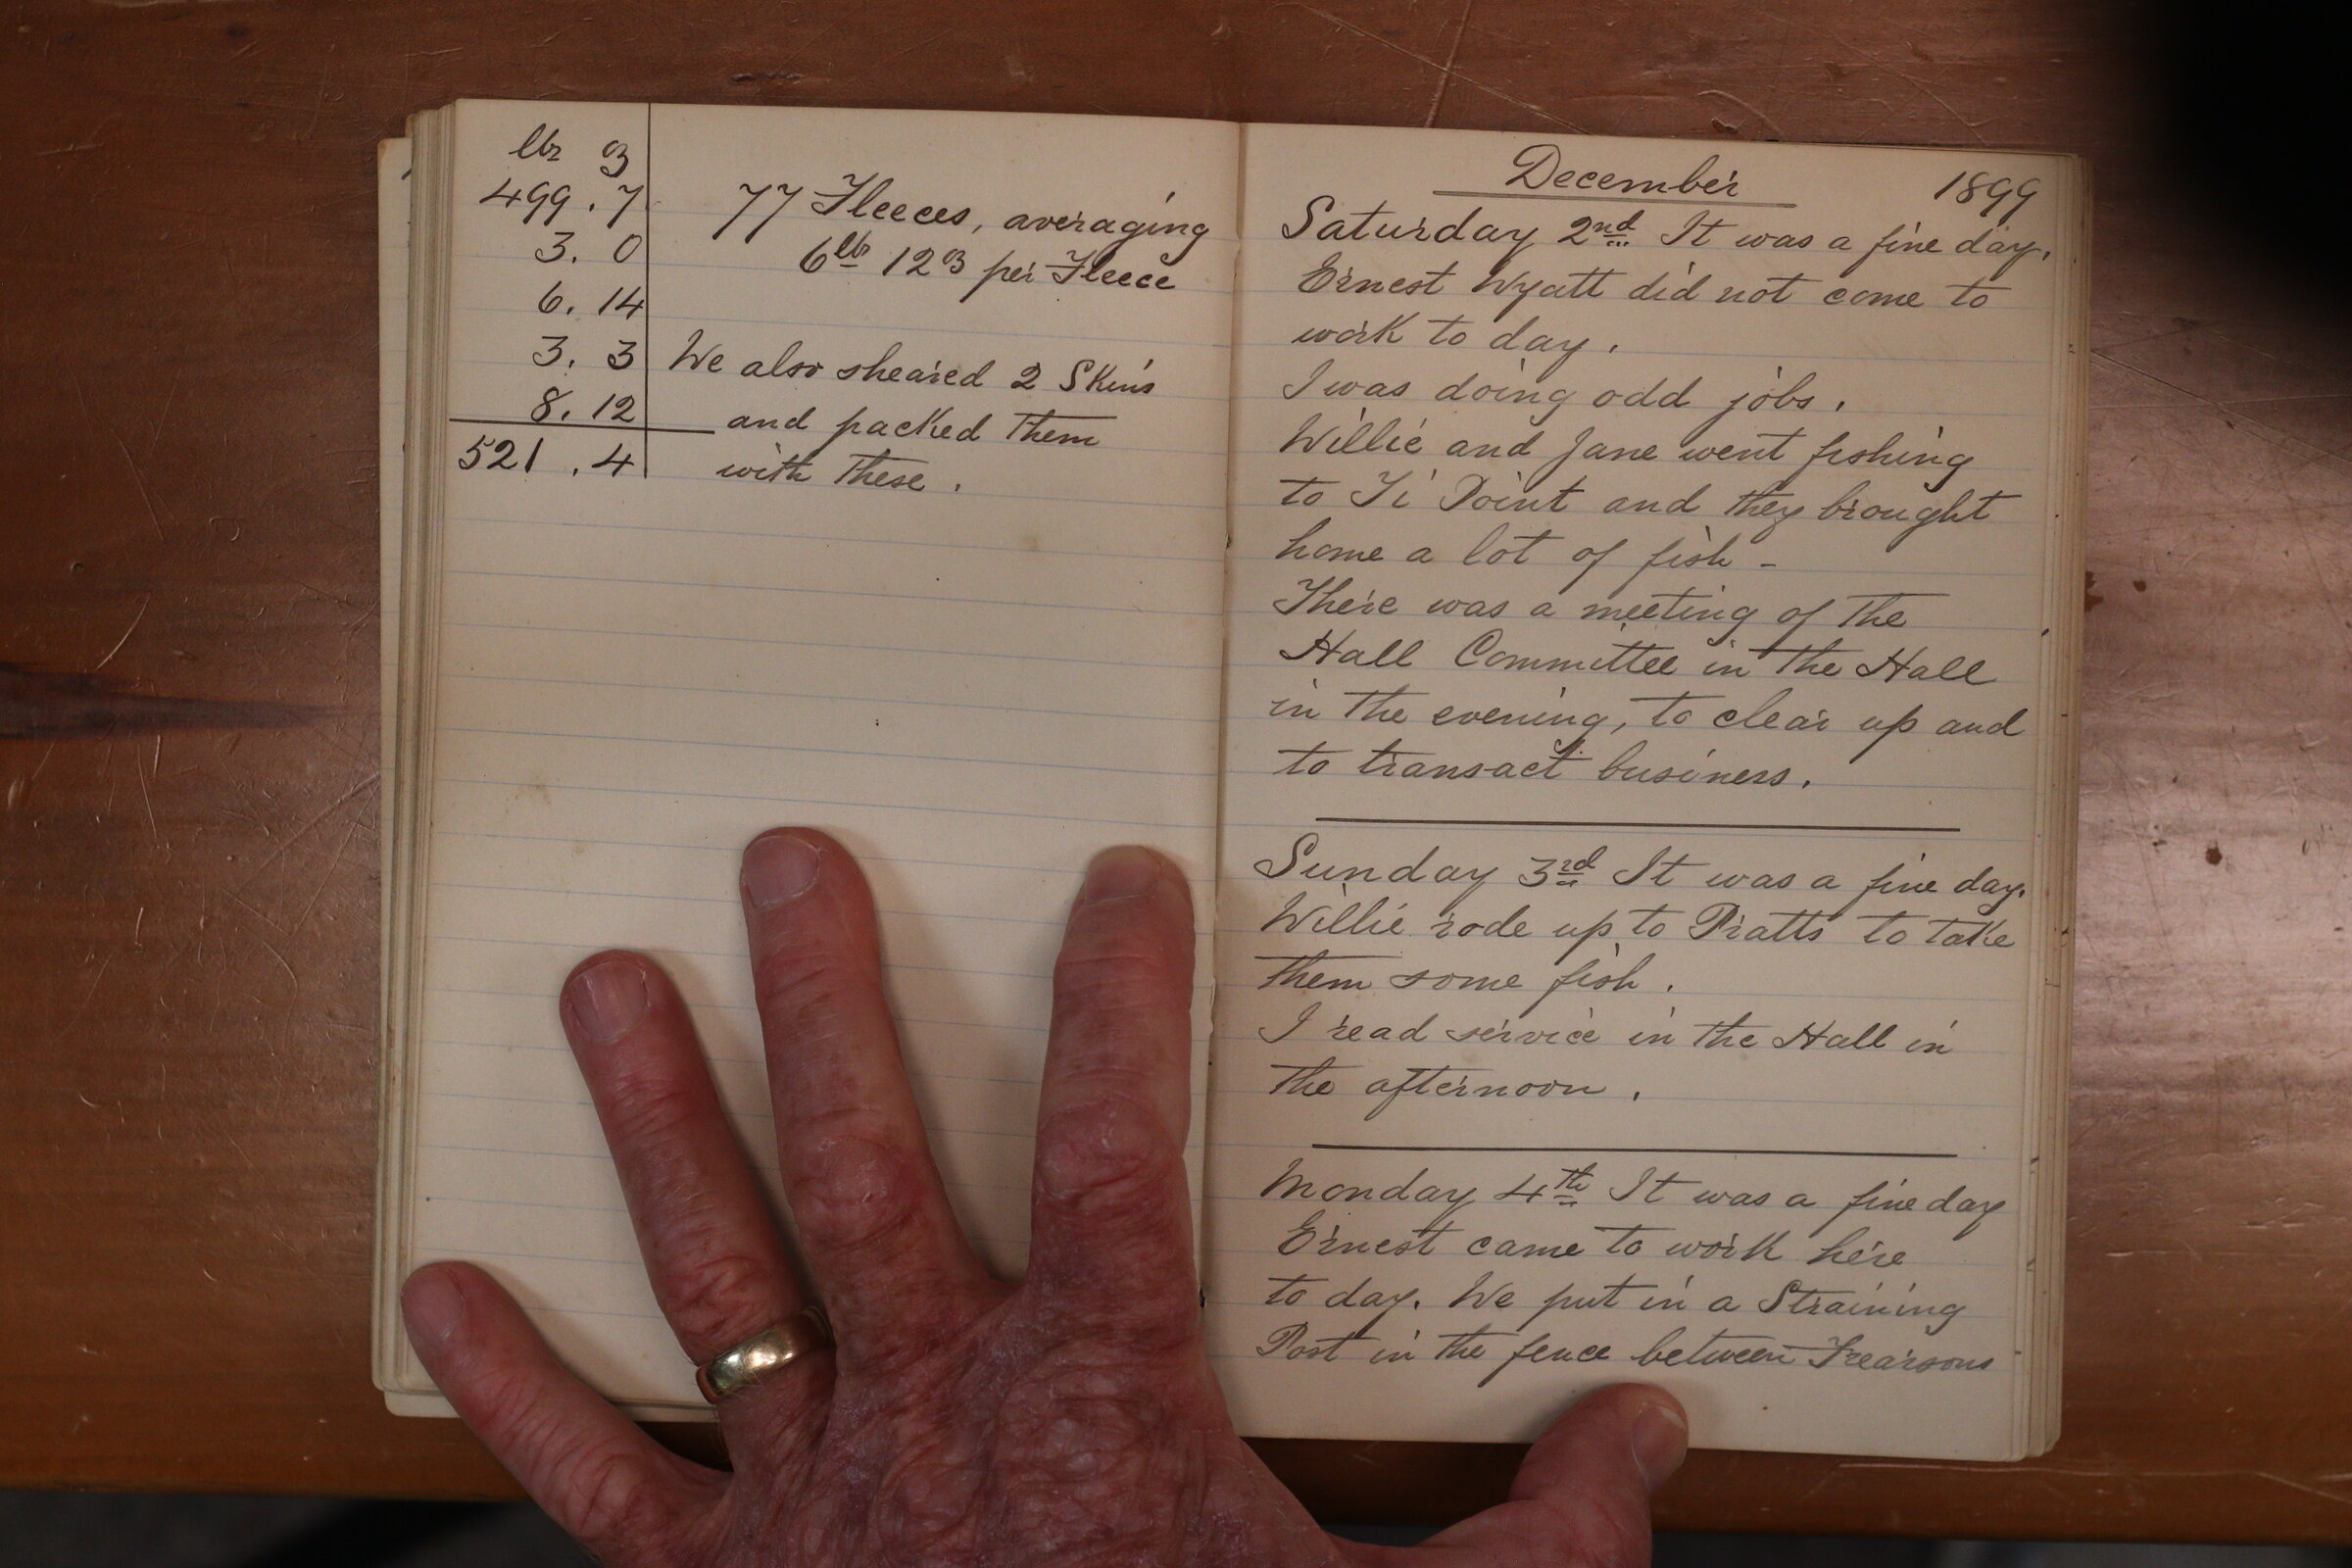 lbs oz
499 . 7
3 . 0
6 . 14
3 . 3
8 . 12
521 . 4
77 Fleeces, averaging
6 lbs 12 oz per Fleece
We also sheared 2 Skins
and packed them
with these .
December 1899
Saturday 2nd It was a fine day.
Ernest Wyatt did not come to
work to day .
I was doing odd jobs .
Willie and Jane went fishing
to Ti Point and they brought
home a lot of fish -
There was a meeting of the
Hall Committee in the Hall
in the evening, to clear up and
to transact business .
Sunday 3rd It was a fine day.
Willie rode up to Pratts to take
them some fish .
I read service in the Hall in
the afternoon .
Monday 4th It was a fine day
Ernest came to work here
to day. We put in a Straining
Post in the fence between Frearsons